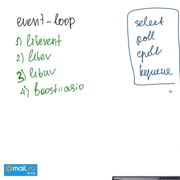 event-loop
1) libevent
2) libev
3) libuv
4) boost::asio
select
poll
epoll
kqueue
@mail.ru
group